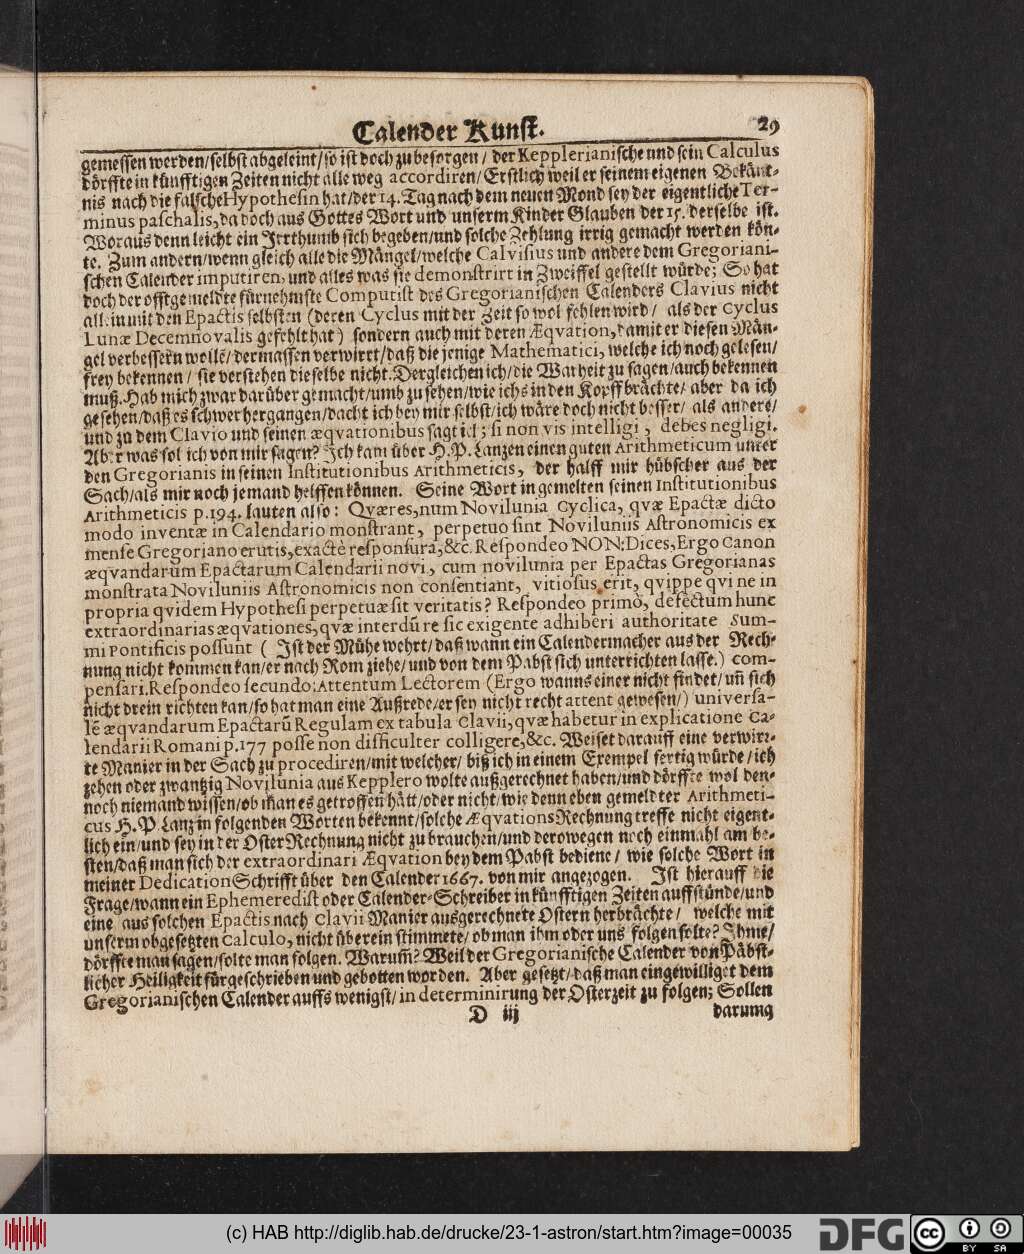 Calender Kunst. 29
gemessen werden/selbst abgeleint/so ist doch zu besorgen/ der Kepplerianische und sein Calculus
dörffte in künfftigen Zeiten nicht alle weg accordiren/Erstlich weil er seinem eigenen Bekänt-
nis nach die falsche Hypothesin hat/der 14. Tag nach dem neuen Mond sey der eigentliche Ter-
minus paschalis, da doch aus Gottes Wort und unserm Kinder Glauben der 15. derselbe ist.
Woraus denn leicht ein Irrthumb sich begeben/und solche Zehlung irrig gemacht werden kön-
te. Zum andern/wenn gleich alle die Mängel/welche Calvisius und andere dem Gregoriani-
schen Calender imputiren, und alles was sie demonstrirt in Zweiffel gestellt würde; So hat
doch der offtgemeldte fürnehmste Computist des Gregorianischen Calenders Clavius nicht
allein mit den Epactis selbsten (deren Cyclus mit der Zeit so wol fehlen wird/ als der Cyclus
Lunæ Decemnovalis gefehlt hat) sondern auch mit deren Æqvation, damit er diesen Män-
gel verbessern wollē/ dermassen verwirrt/daß die jenige Mathematici, welche ich noch gelesen/
frey bekennen/ sie verstehen dieselbe nicht. Dergleichen ich/die Warheit zu sagen/auch bekennen
muß. Hab mich zwar darüber gemacht/umb zu sehen/wie ichs in den Kopff brächte/ aber da ich
gesehen/daß es schwer hergangen/dacht ich bey mir selbst/ich wäre doch nicht besser/ als andere/
und zu dem Clavio und seinen æqvationibus sagt ich; si non vis intelligi, debes negligi.
Aber was sol ich von mir sagen? Ich kam über H. P. Lanzen einen guten Arithmeticum unter
den Gregorianis in seinen Institutionibus Arithmeticis, der halff mir hübscher aus der
Sach/als mir noch jemand helffen können. Seine Wort in gemelten seinen Institutionibus
Arithmeticis p. 194. lauten also: Qværes, num Novilunia Cyclica, qvæ Epactæ dicto
modo inventæ in Calendario monstrant, perpetuo sint Noviluniis Astronomicis ex
mense Gregoriano erutis, exactè responsura, &c. Respondeo NON: Dices, Ergo Canon
æqvandarum Epactarum Calendarii novi, cum novilunia per Epactas Gregorianas
monstrata Noviluniis Astronomicis non consentiant, vitiosus erit, qvippe qvi ne in
propria qvidem Hypothesi perpetuæ sit veritatis? Respondeo primò, defectum hunc
extraordinarias æqvationes, qvæ interdū re sic exigente adhiberi authoritate Sum-
mi Pontificis possunt ( Ist der Mühe wehrt/ daß wann ein Calendermacher aus der Rech-
nung nicht kommen kan/er nach Rom ziehe/und von dem Pabst sich unterrichten lasse.) com-
pensari. Respondeo secundo: Attentum Lectorem (Ergo wanns einer nicht findet/ uñ sich
nicht drein richten kan/so hat man eine Außrede/er sey nicht recht attent gewesen/) universa-
lē æqvandarum Epactarū Regulam ex tabula Clavii, qvæ habetur in explicatione Ca-
lendarii Romani p. 177 posse non difficulter colligere, &c. Weiset darauff eine verwirr-
te Manier in der Sach zu procediren/mit welcher/ biß ich in einem Exempel fertig würde/ich
zehen oder zwantzig Novilunia aus Kepplero wolte außgerechnet haben/und dörffte wol den-
noch niemand wissen/ob man es getroffen hätt/oder nicht/wie denn eben gemeldter Arithmeti-
cus H. P. Lanz in folgenden Worten bekennt/solche Æqvations Rechnung treffe nicht eigent-
lich ein/und sey in der Oster Rechnung nicht zu brauchen/und derowegen noch einmahl am be-
sten/daß man sich der extraordinari Æqvation bey dem Pabst bediene/ wie solche Wort in
meiner Dedication Schrifft über den Calender 1667. von mir angezogen. Ist hierauff die
Frage/wann ein Ephemeredist oder Calender-Schreiber in künfftigen Zeiten auffstünde/und
eine aus solchen Epactis nach Clavii Manier ausgerechnete Ostern herbrächte/ welche mit
unserm obgesetzten Calculo, nicht überein stimmete/ ob man ihm oder uns folgen solte? Ihme/
dörffte man sagen/solte man folgen. Warum̃? Weil der Gregorianische Calender von Päbst-
licher Heiligkeit fürgeschrieben und gebotten worden. Aber gesetzt/daß man eingewilliget dem
Gregorianischen Calender auffs wenigst/in determinirung der Osterzeit zu folgen; Sollen
D iij darumb
(c) HAB http://diglib.hab.de/drucke/23-1-astron/start.htm?image=00035
DFG
cc BY SA